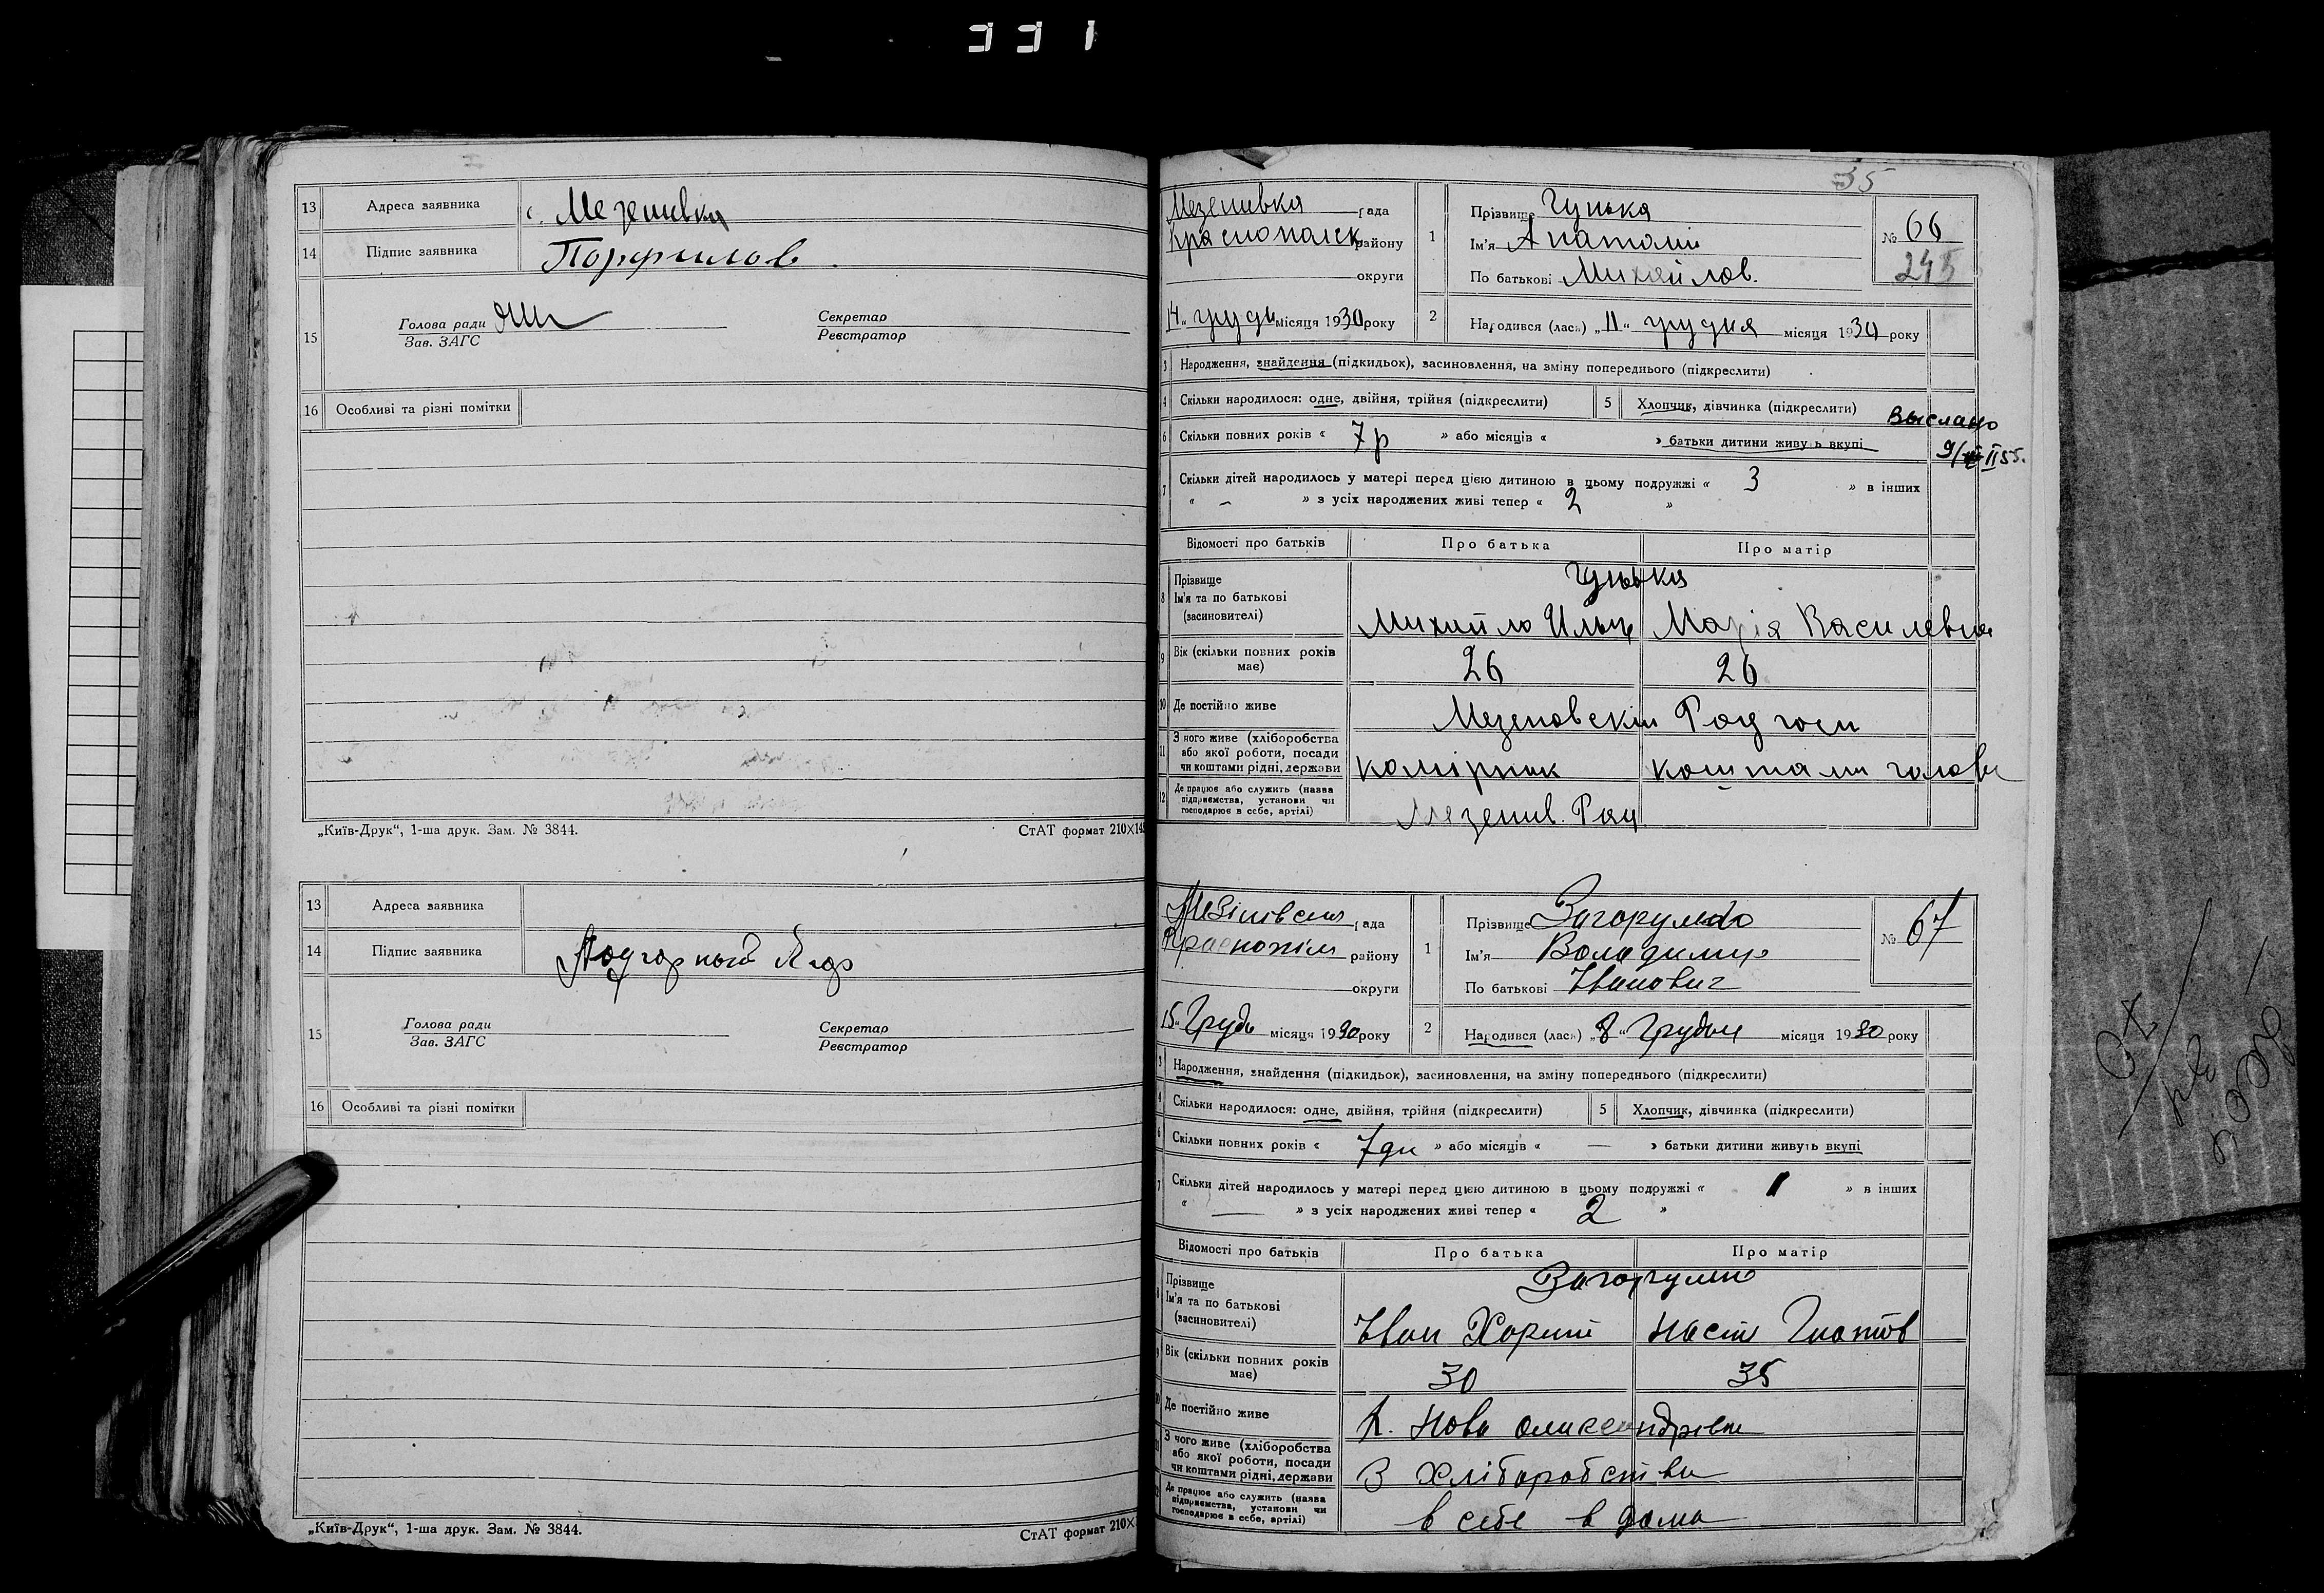 331
13 Адреса заявника с. Мезенивка
14 Підпис заявника Порфилов
15 Голова ради Секретар
Зав. ЗАГС Реєстратор
16 Особливі та різні помітки
„Київ-Друк“, 1-ша друк. Зам. № 3844. СтАТ формат 210×14
13 Адреса заявника
14 Підпис заявника Подгорный
15 Голова ради Секретар
Зав. ЗАГС Реєстратор
16 Особливі та різні помітки
„Київ-Друк“, 1-ша друк. Зам. № 3844. СтАТ формат 210×
35
Мезенивка рада
Краснопольск району
округи
1 Прізвище Гунька
Ім'я Анатолій
По батькові Михайлов.
№ 66
245
груд місяця 1930 року
2 Народився (лась) „11“ грудня місяця 1930 року
3 Народження, знайдення (підкидьок), засиновлення, на зміну попереднього (підкреслити)
4 Скільки народилося: одне, двійня, трійня (підкреслити) 5 Хлопчик, дівчинка (підкреслити)
Выслано
9/II 55.
6 Скільки повних років « 7р » або місяців « » батьки дитини живуть вкупі
7 Скільки дітей народилось у матері перед цією дитиною в цьому подружжі « 3 » в інших
« – » з усіх народжених живі тепер « 2 »
Відомості про батьків Про батька Про матір
8 Прізвище Гунька
Ім'я та по батькові Михайло Ильич Марія Василевна
(засиновителі)
9 Вік (скільки повних років має) 26 26
10 Де постійно живе Мезеновский Радгосп
11 З чого живе (хліборобства
або якої роботи, посади
чи коштами рідні, держави комірник коштами голови
12 Де працює або служить (назва
підприємства, установи чи
господарює в себе, артілі) Мезенив. Рад
Мезінівська рада
Краснопіль району
округи
1 Прізвище Загорулько
Ім'я Володимир
По батькові Іванович
№ 67
15 „Грудь місяця 1930 року
2 Народився (лась) „8“ Грудня місяця 1930 року
3 Народження, знайдення (підкидьок), засиновлення, на зміну попереднього (підкреслити)
4 Скільки народилося: одне, двійня, трійня (підкреслити) 5 Хлопчик, дівчинка (підкреслити)
6 Скільки повних років « 7 дн » або місяців « — » батьки дитини живуть вкупі
7 Скільки дітей народилось у матері перед цією дитиною в цьому подружжі « 1 » в інших
« — » з усіх народжених живі тепер « 2 »
Відомості про батьків Про батька Про матір
8 Прізвище Загорулько
Ім'я та по батькові Іван Харит Наст Гнатов
(засиновителі)
9 Вік (скільки повних років має) 30 35
10 Де постійно живе х. Ново олександрівка
11 З чого живе (хліборобства
або якої роботи, посади
чи коштами рідні, держави З Хліборобства
12 Де працює або служить (назва
підприємства, установи чи
господарює в себе, артілі) в себе в дома